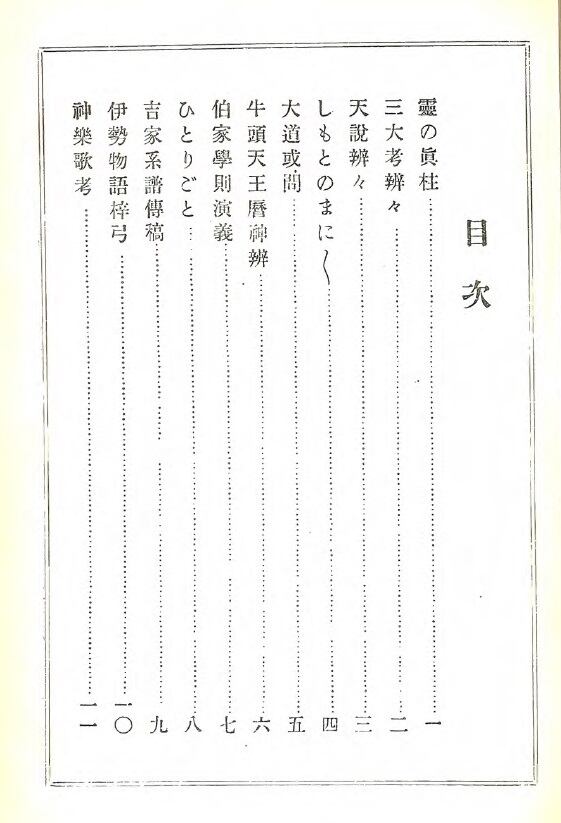 目次
靈の眞柱……一
三大考辨々……二
天說辨々……三
しもとのまに〱……四
大道或問……五
牛頭天王曆神辨……六
伯家學則演義……七
ひとりごと……八
吉家系譜傳稿……九
伊勢物語梓弓……一〇
神樂歌考……一一